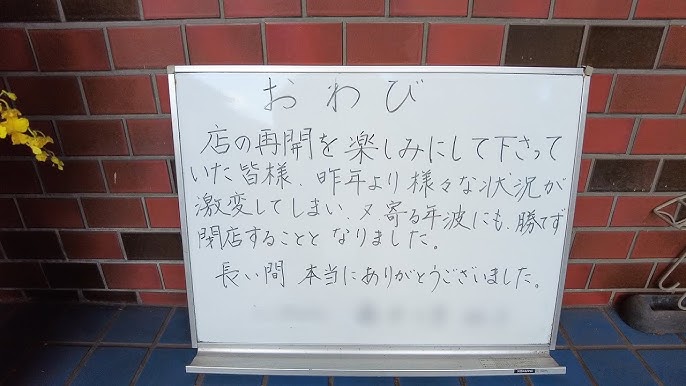 おわび
店の再開を楽しみにして下さって
いた皆様、昨年より様々な状況が
激変してしまい、又寄る年波にも、勝てず
閉店することとなりました。
長い間 本当にありがとうございました。